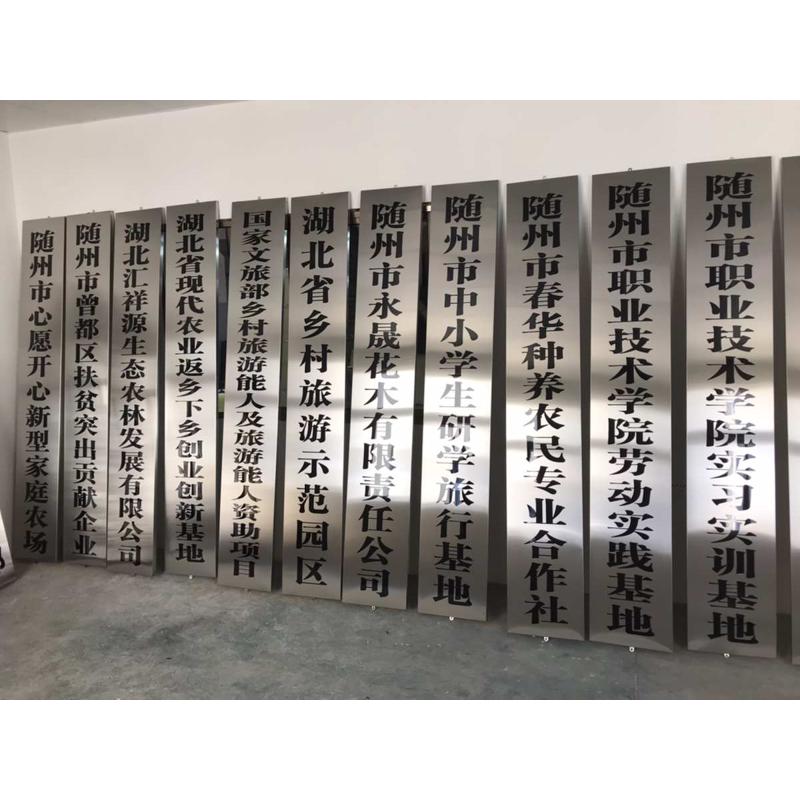 随州市心愿开心新型家庭农场
随州市曾都区扶贫突出贡献企业
湖北汇祥源生态农林发展有限公司
湖北省现代农业返乡下乡创业创新基地
国家文旅部乡村旅游能人及旅游能人资助项目
湖北省乡村旅游示范园区
随州市永晟花木有限责任公司
随州市中小学生研学旅行基地
随州市春华种养农民专业合作社
随州市职业技术学院劳动实践基地
随州市职业技术学院实习实训基地